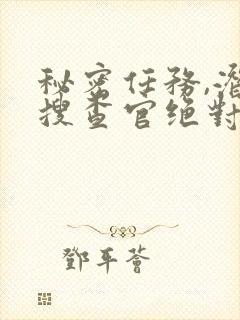 秘密任務,潛
搜查官绝對
鄧平薈